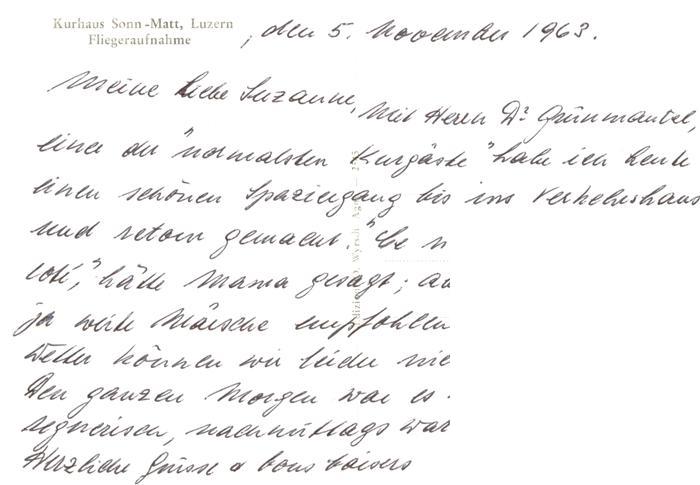 Kurhaus Sonn-Matt, Luzern
Fliegeraufnahme
, den 5. November 1963.
Meine liebe Suzanne,
Mit Herrn Dr Grünmantel,
einer der "normalsten Kurgäste" habe ich heute
einen schönen Spaziergang bis ins Verkehrshaus
und retour gemacht.
hätte Mama gesagt;
ja weite Märsche empfohlen
Wetter können wir leider
Den ganzen Morgen war es
regnerisch, nachmittags war
Herzliche Grüsse & bons baisers